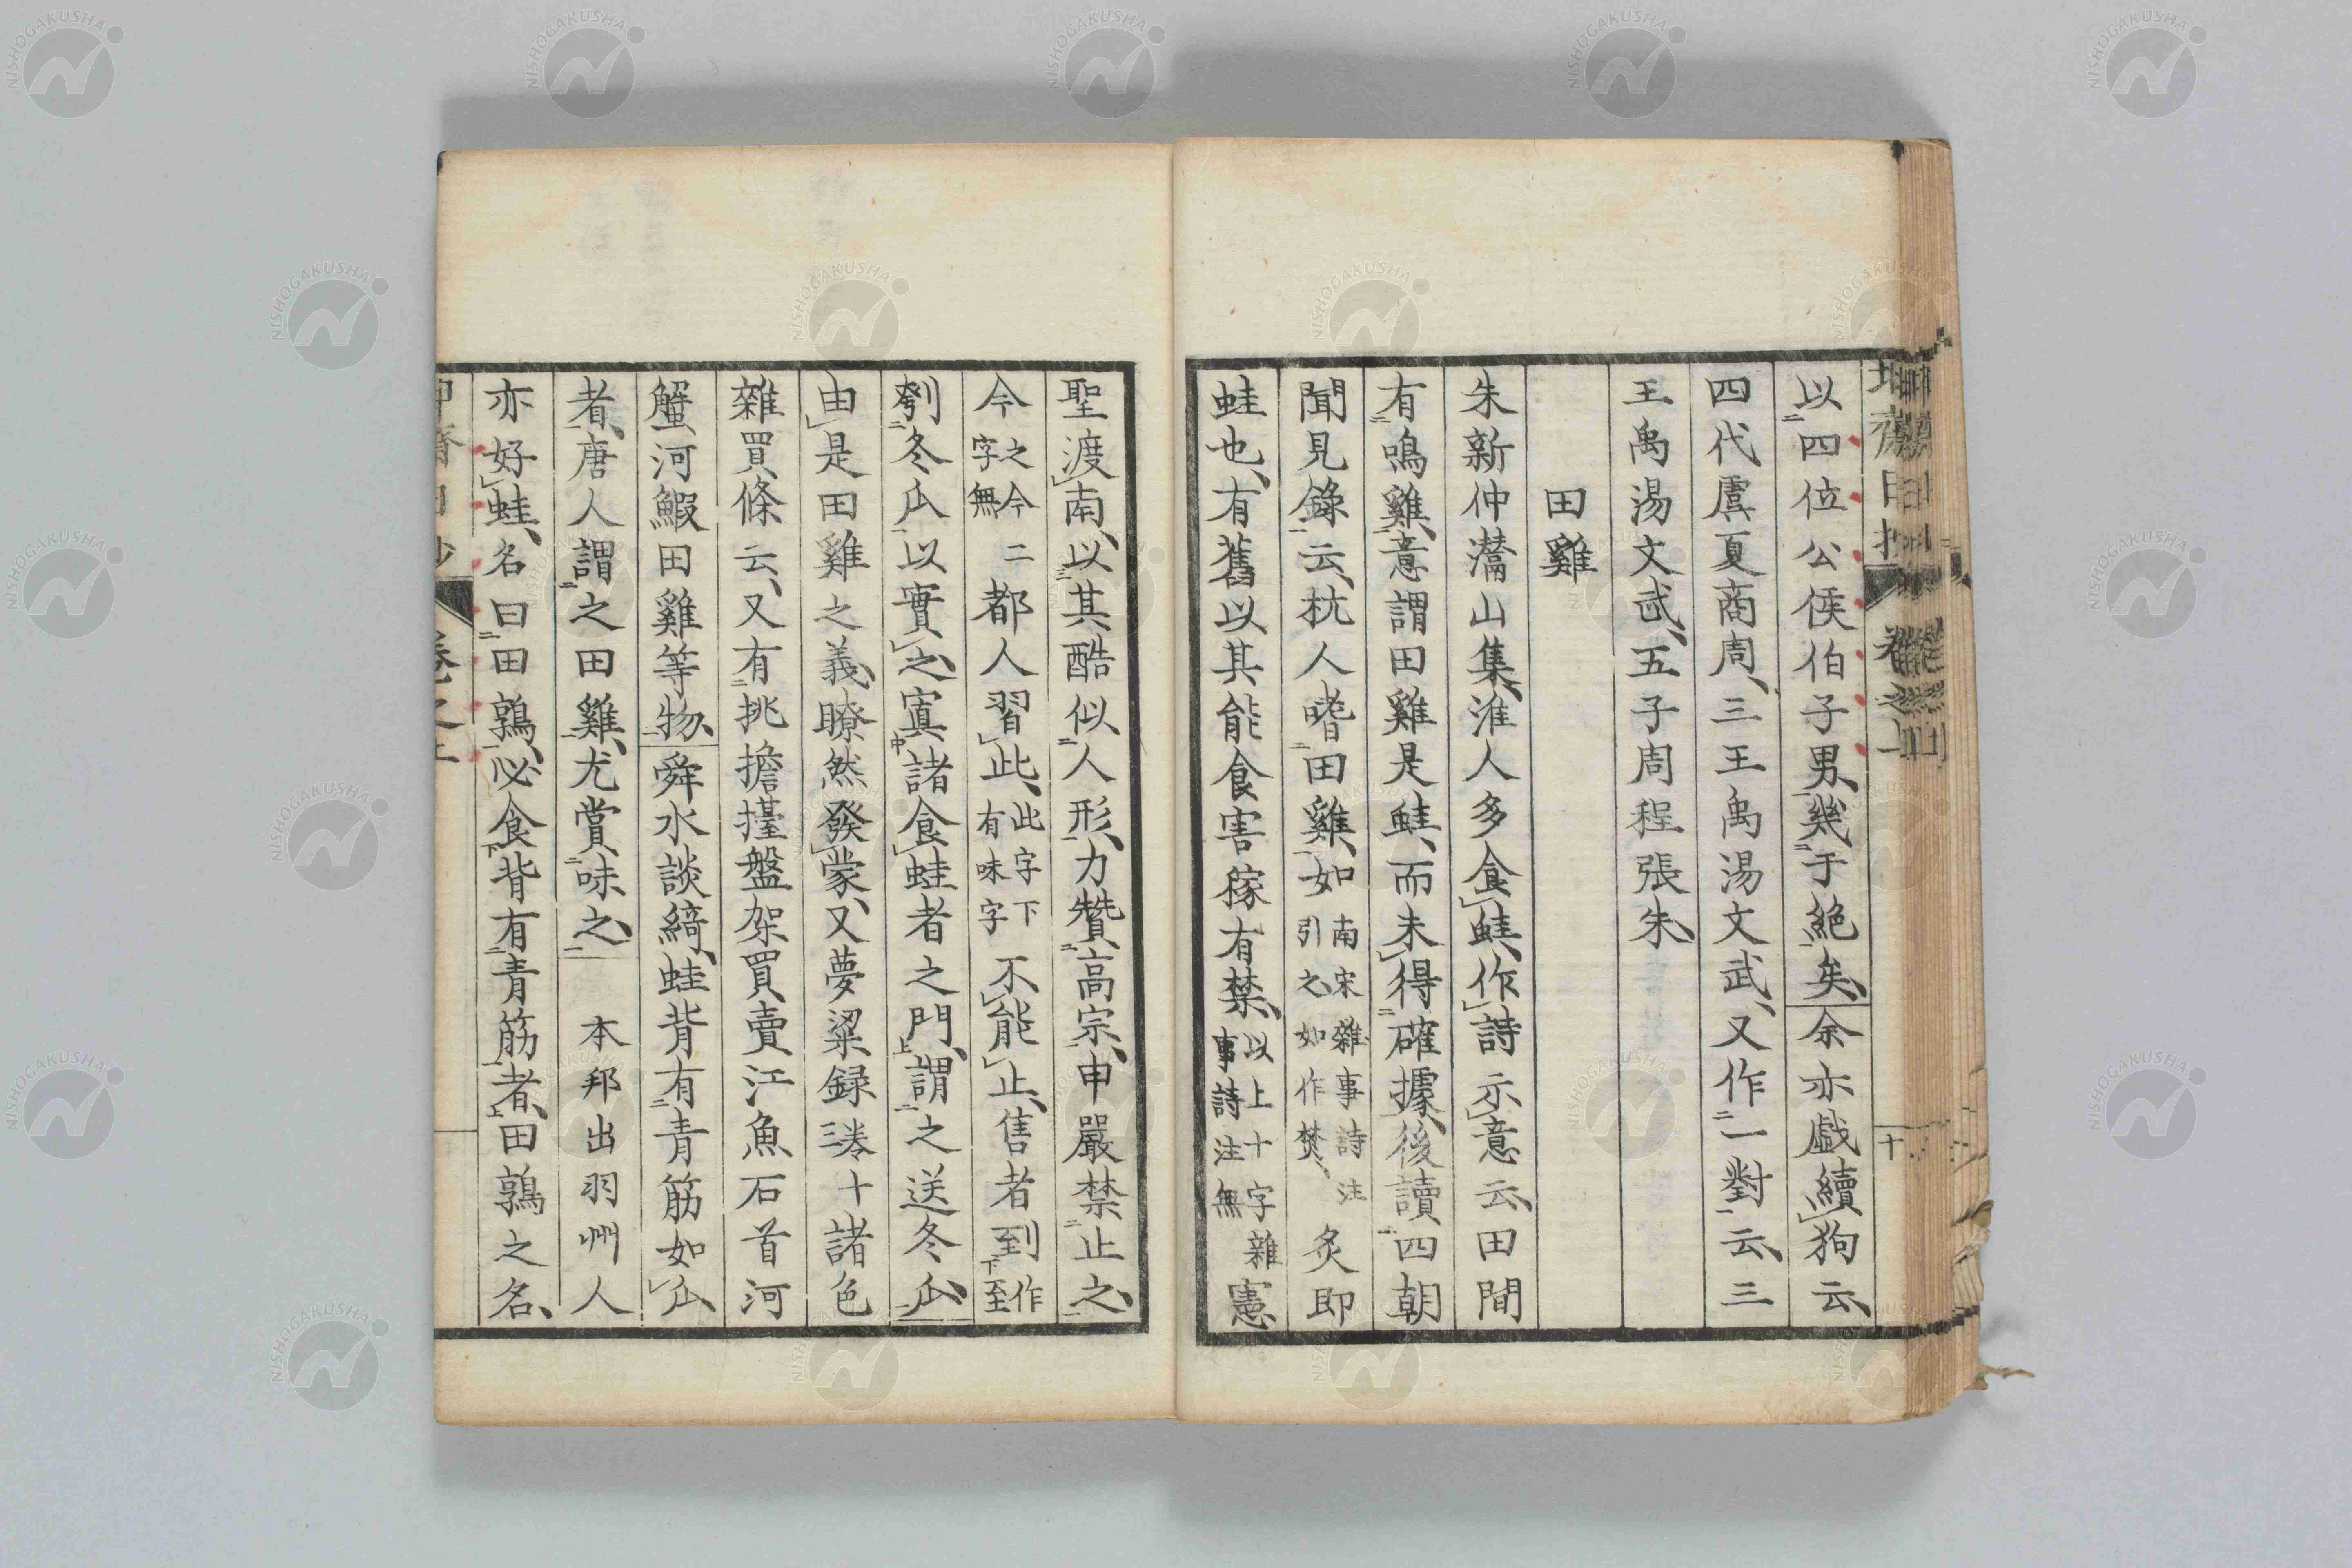 以四位公侯伯子男、幾于絶矣、余亦戯續狗云、
四代虞夏商周、三王禹湯文武、又作一對云、三
王禹湯文武、五子周程張朱、
田雞
朱新仲灊山集、淮人多食蛙、作詩示意云、田間
有鳴雞、意謂田雞是蛙、而未得確據、後讀四朝
聞見錄云、杭人嗜田雞、如南宋雜事詩注引之、如作焚、炙即
蛙也、有舊以其能食害稼有禁、以上十字雜事詩注無憲
聖渡南、以其酷似人形、力贊高宗、申嚴禁止之、
今之今字無二都人習此、此字下有味字不能止、售者到作至
刳冬瓜以實之、寘諸食蛙者之門、謂之送冬瓜、
由是田雞之義、瞭然發蒙、又夢粱録三卷十諸色
雜買條云、又有挑擔擡盤架買賣江魚石首河
蟹河鰕田雞等物、舜水談綺、蛙背有青筋如瓜
者、唐人謂之田雞、尤賞味之、本邦出羽州人
亦好蛙、名曰田鶏、必食背有青筋者、田鶏之名、
卷之上
十
NISHOGAKUSHA